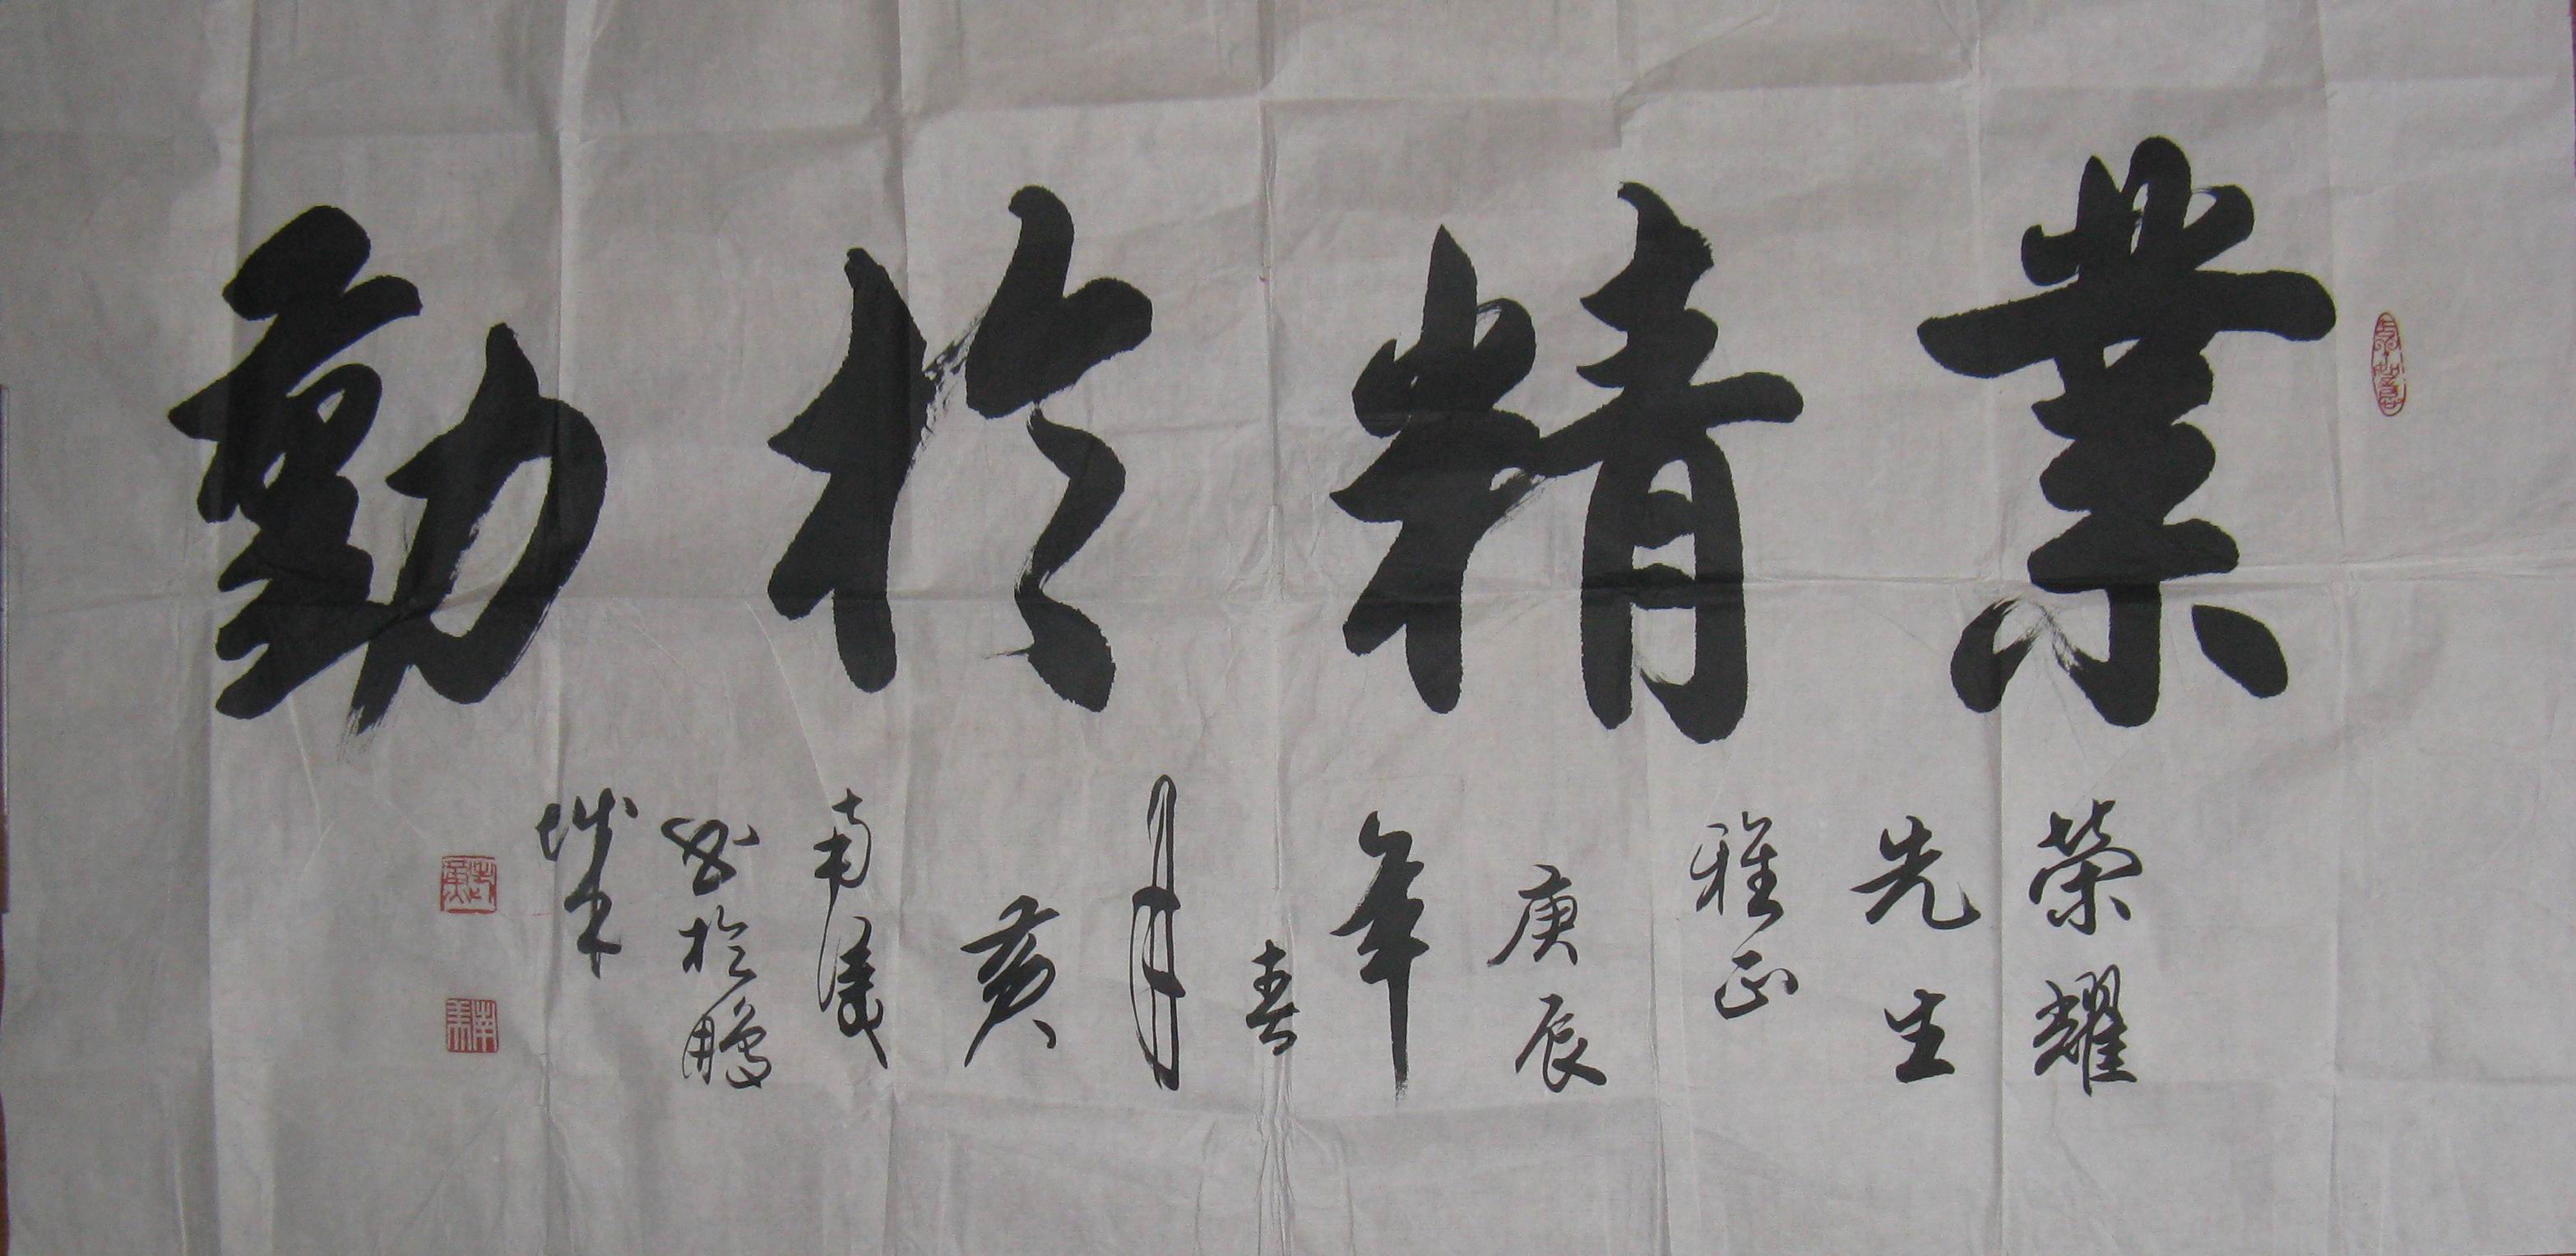 業精於勤
榮耀
先生
雅正
庚辰
年
春
月
黃
南溪
書於鵬
城